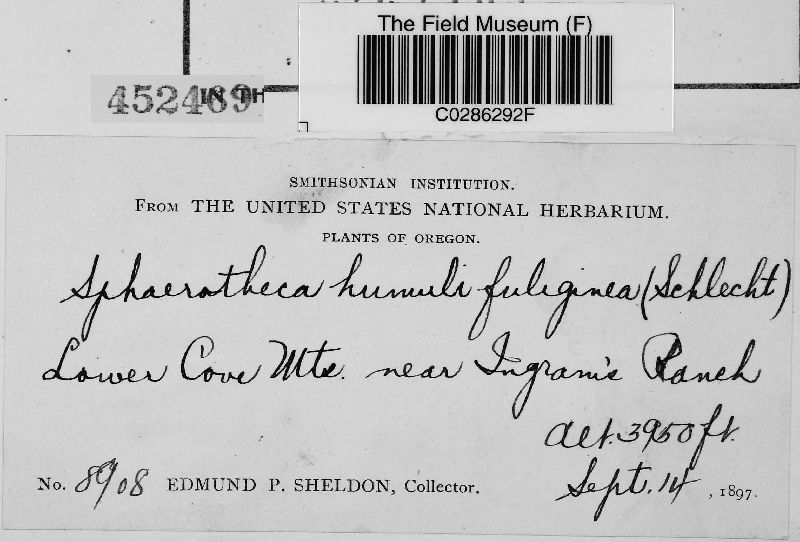 The Field Museum (F)
C0286292F
452469
SMITHSONIAN INSTITUTION.
FROM THE UNITED STATES NATIONAL HERBARIUM.
PLANTS OF OREGON.
Sphaerotheca humuli fuliginea (Schlecht)
Lower Cove Mts. near Ingram's Ranch
alt. 3950 ft.
No. 8908 EDMUND P. SHELDON, Collector.
Sept. 14, 1897.